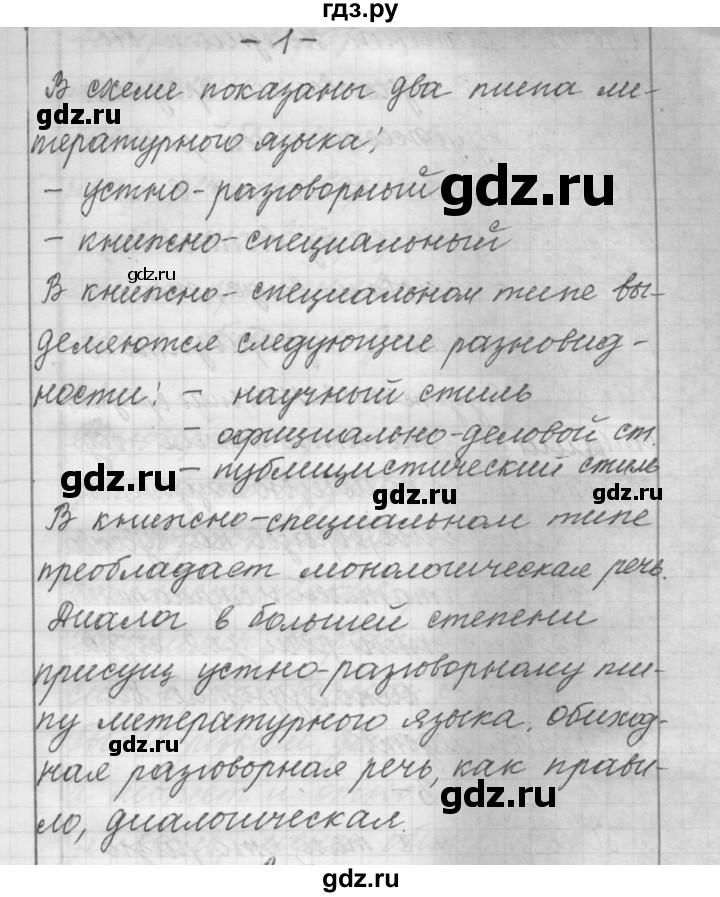 гдз.ру
- 1 -
В схеме показаны два типа ли-
gdz.ru
тературного языка:
- устно-разговорный
gdz.ru
- книжно-специальный
gdz.ru
В книжно-специальном типе вы-
деляются следующие разновид-
ности: - научный стиль
- официально-деловой ст.
- публицистический стиль
gdz.ru
gdz.ru
gdz.ru
В книжно-специальном типе
преобладает монологическая речь.
Диалог в большей степени
присущ устно-разговорному ти-
пу литературного языка. Обиход-
gdz.ru
ная разговорная речь, как прави-
gdz.ru
ло, диалогическая.
gdz.ru